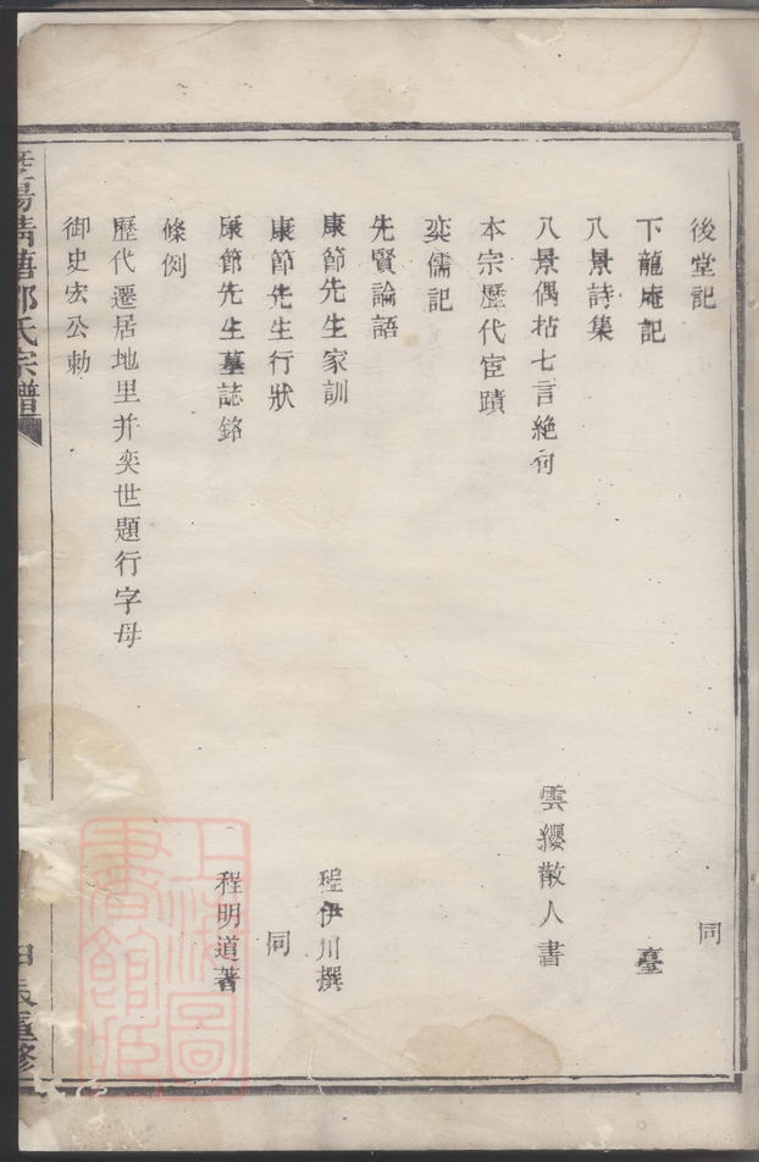 後堂記 同
下龍庵記 臺
八景詩集
八景偶拈七言絶句 雲纓散人書
本宗歷代宦蹟
奕儒記
先賢論語
康節先生家訓 程伊川撰
康節先生行狀 同
康節先生墓誌銘 程明道著
條例
歷代遷居地里并奕世題行字母
御史宏公勅
清蕅邵氏宗譜
上海圖書館藏